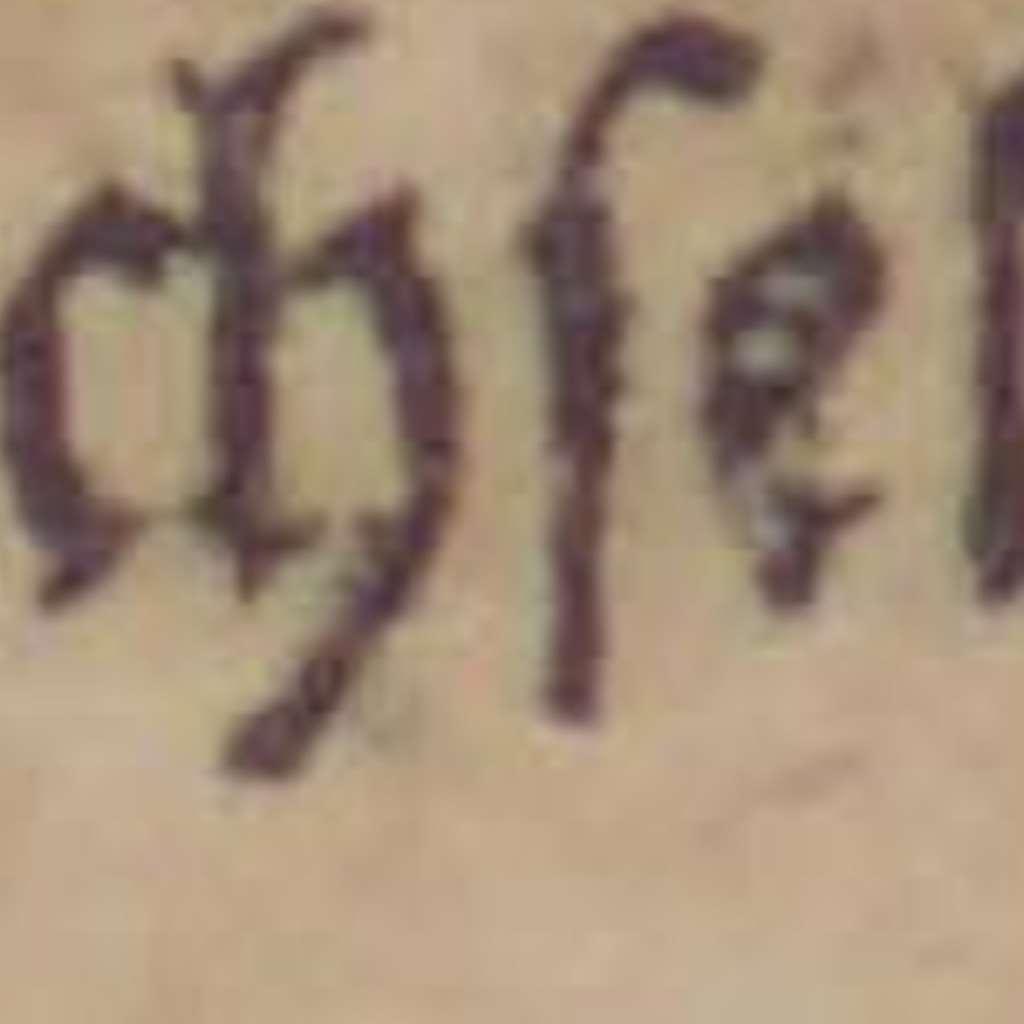 chſel